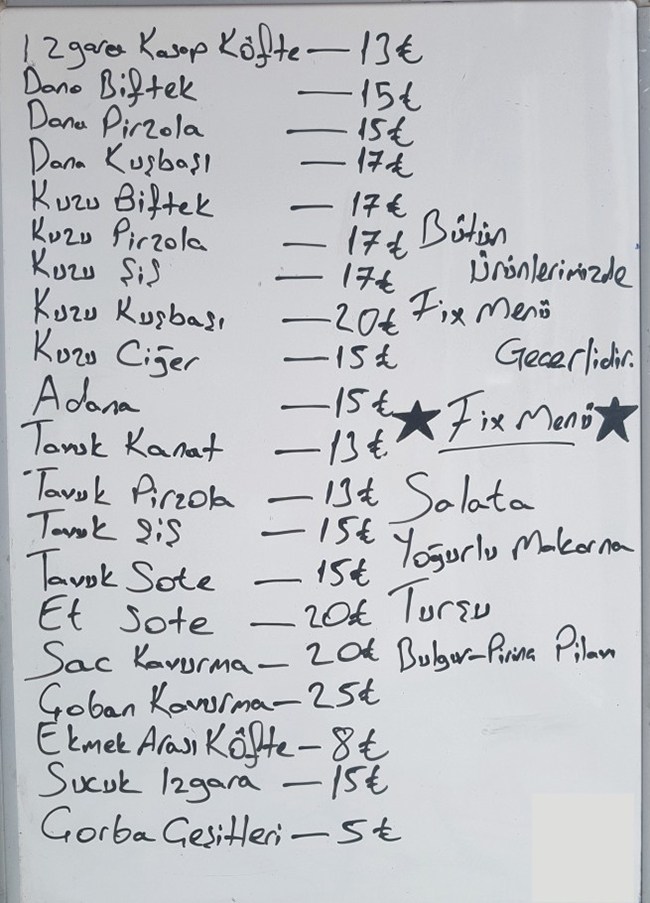 Izgara Kasap Köfte — 13€
Dana Biftek — 15€
Dana Pirzola — 15€
Dana Kuşbaşı — 17€
Kuzu Biftek — 17€
Kuzu Pirzola — 17€
Kuzu Şiş — 17€
Kuzu Kuşbaşı — 20€
Kuzu Ciğer — 15€
Adana — 15€
Tavuk Kanat — 13€
Tavuk Pirzola — 13€
Tavuk Şiş — 15€
Tavuk Sote — 15€
Et Sote — 20€
Sac Kavurma — 20€
Çoban Kavurma — 25€
Ekmek Arası Köfte — 8€
Sucuk Izgara — 15€
Çorba Çeşitleri — 5€
Bütün
Ürünlerimizde
Fix Menü
Geçerlidir.
★ Fix Menü ★
Salata
Yoğurlu Makarna
Turşu
Bulgur-Pirinç Pilavı